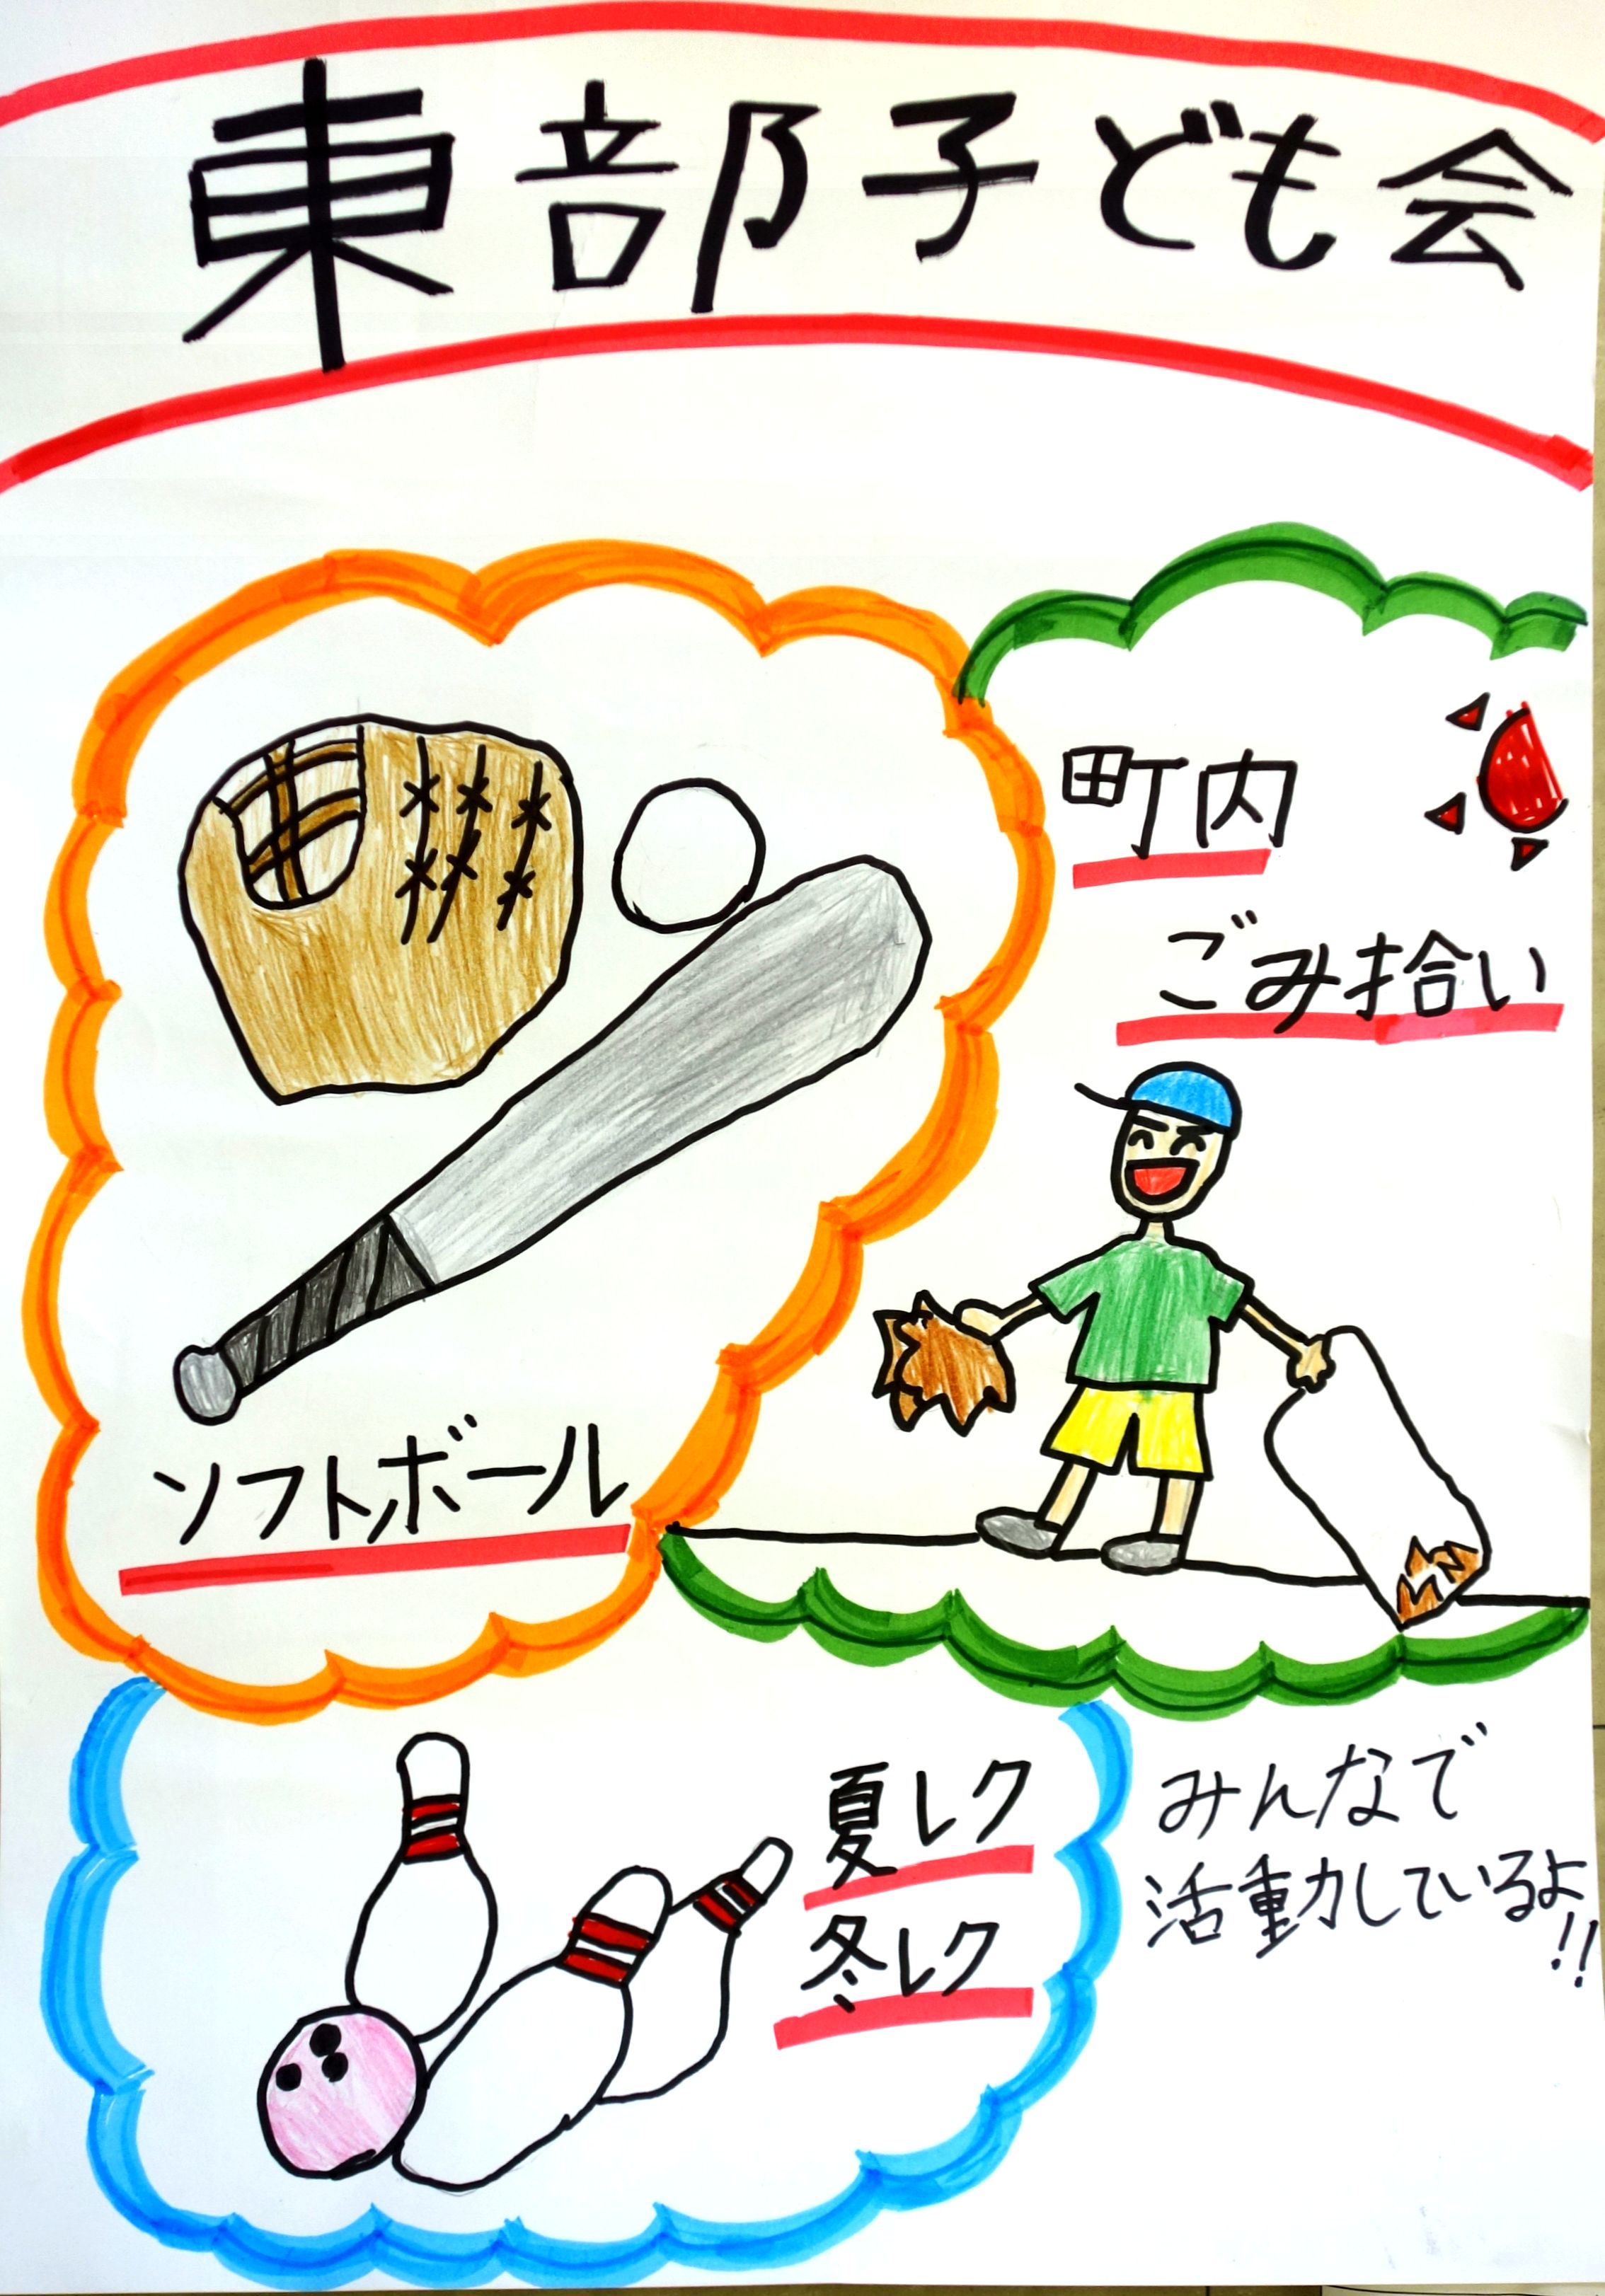 東部子ども会
町内
ごみ拾い
ソフトボール
夏レク
冬レク
みんなで
活動しているよ!!